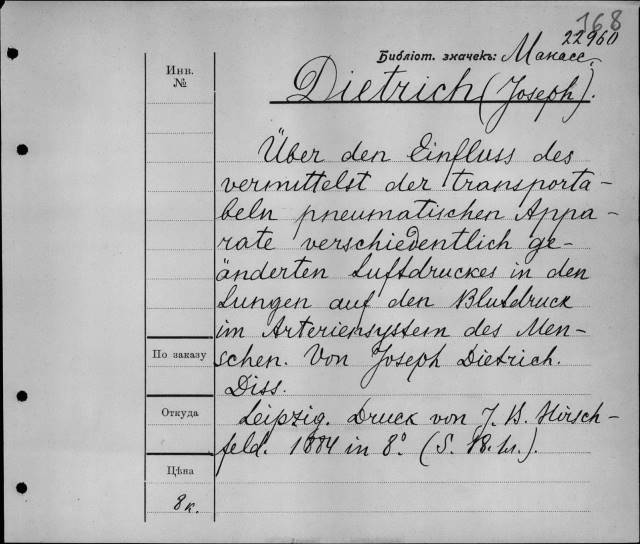 168
22960
Библіот. значекъ: Манасс.
Dietrich (Joseph).
Инв.
№
Über den Einfluss des
vermittelst der transporta-
beln pneumatischen Appa-
rate verschiedentlich ge-
änderten Luftdruckes in den
Lungen auf den Blutdruck
im Arteriensystem des Men-
По заказу
schen. Von Joseph Dietrich.
Diss.
Откуда
Leipzig. Druck von J. B. Hirsch-
feld. 1884 in 8° (S. 18.
Цѣна
8 к.